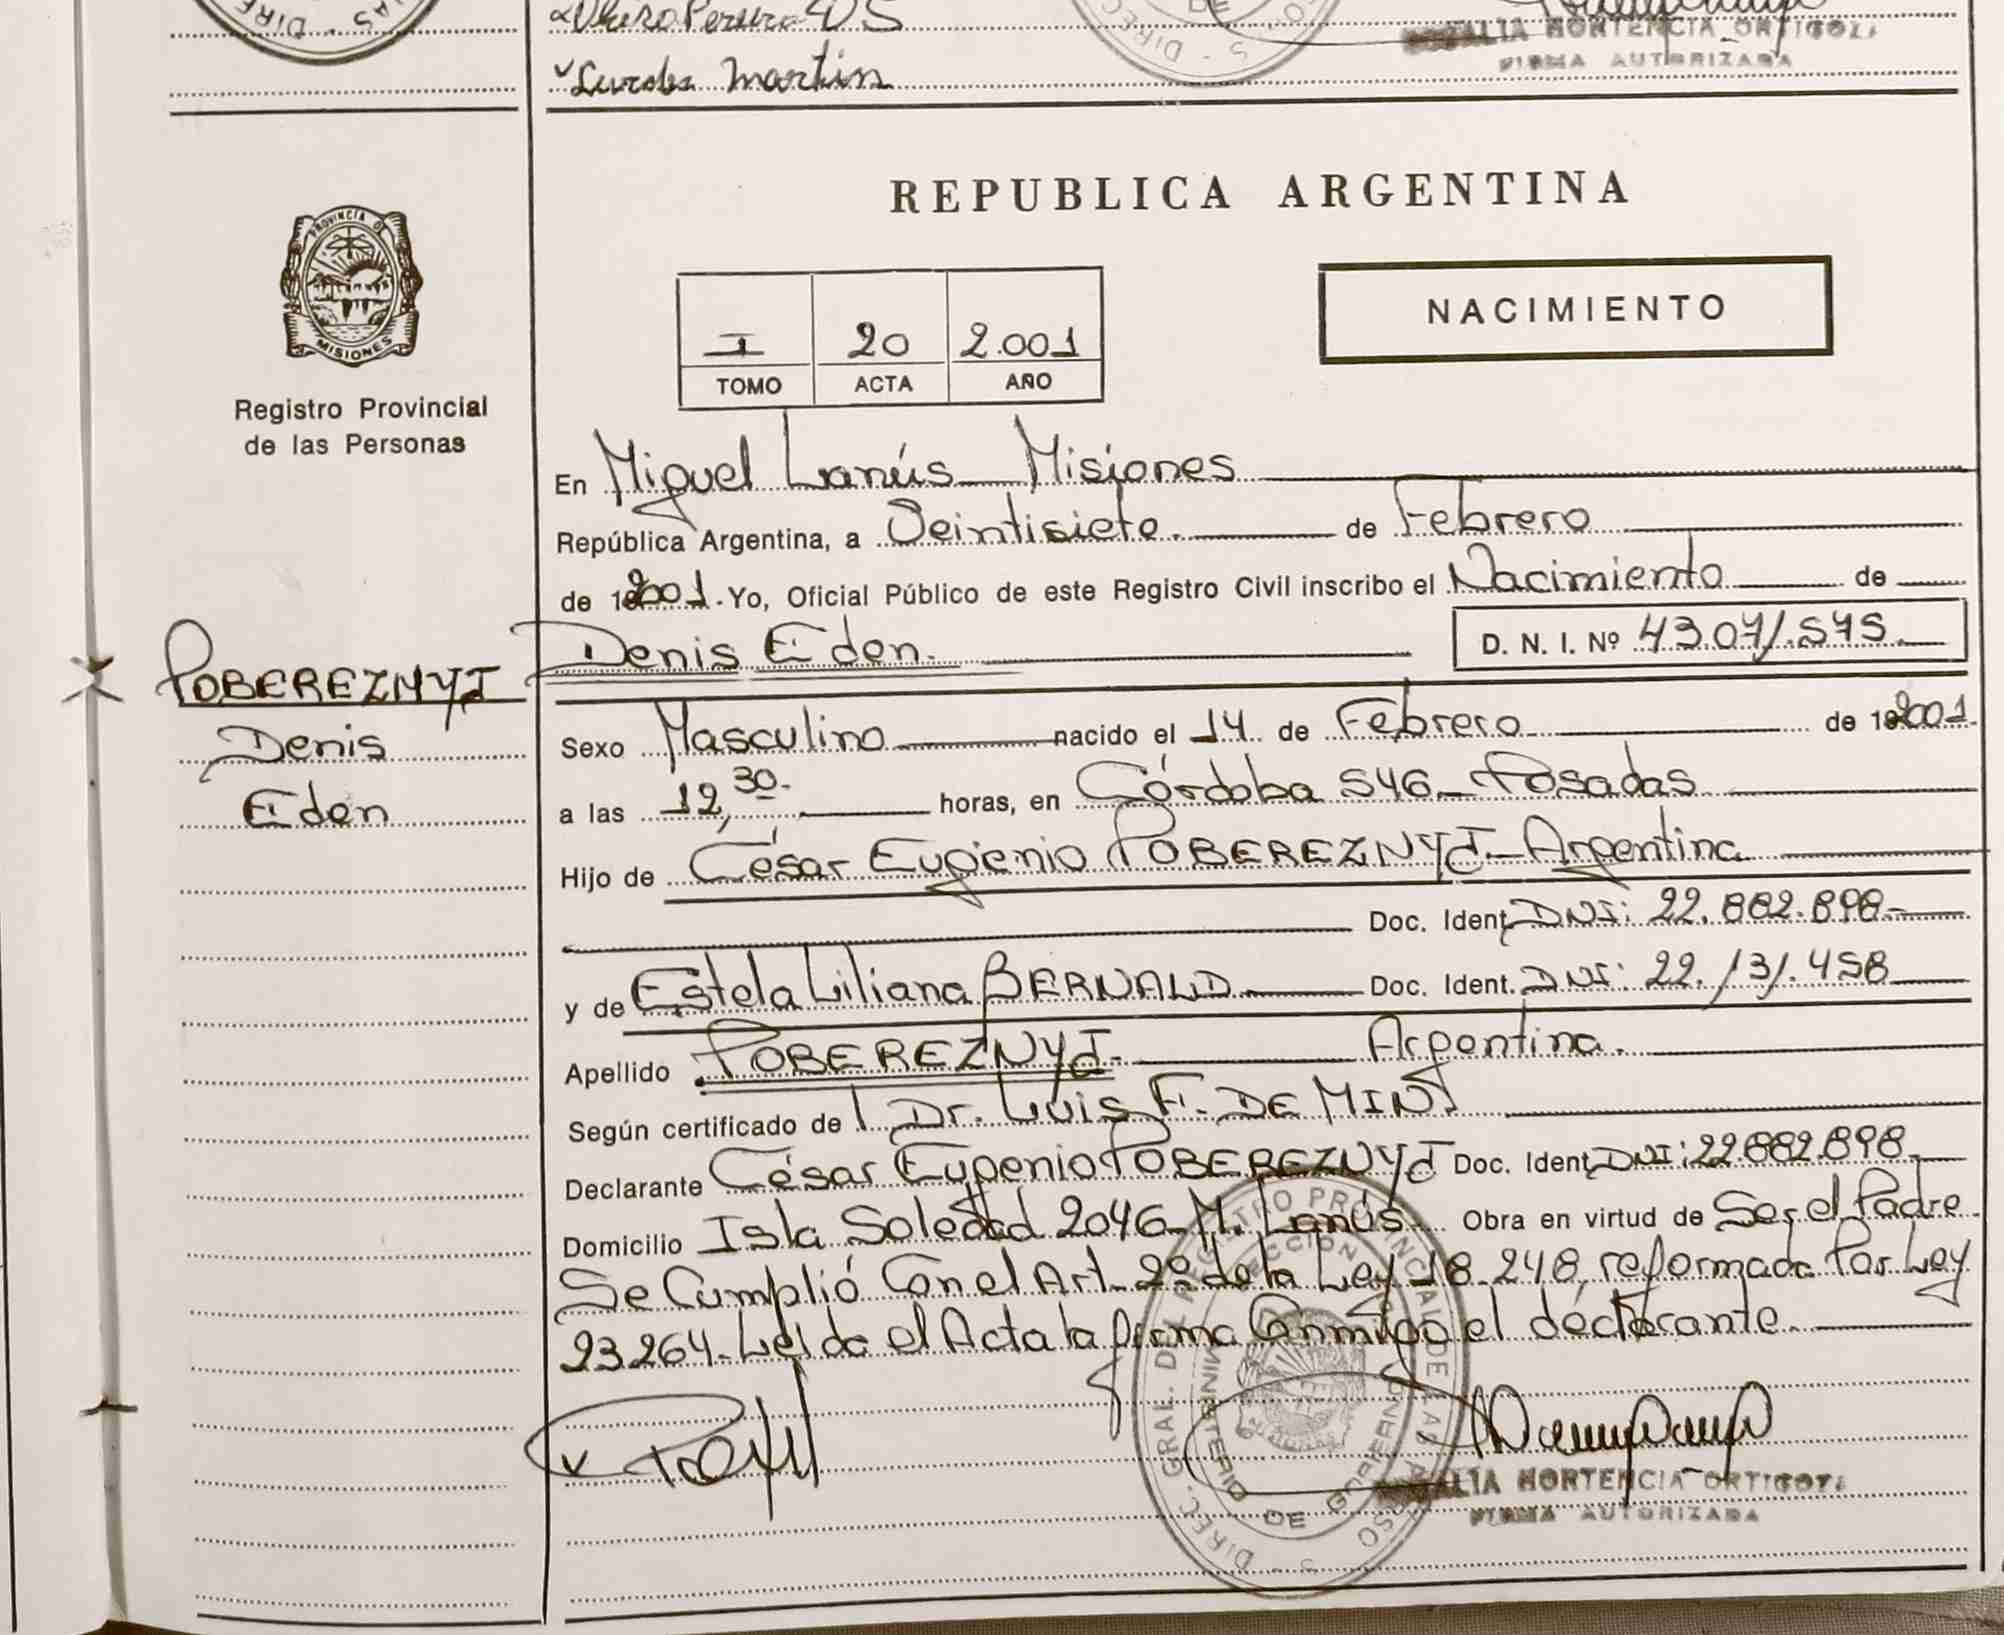 Lurdes Martin
HORTENCIA ORTIGOZA
FIRMA AUTORIZADA
PROVINCIA DE MISIONES
Registro Provincial
de las Personas
REPUBLICA ARGENTINA
I 20 2.001
TOMO ACTA AÑO
NACIMIENTO
En Miguel Lanús Misiones
República Argentina, a Veintisiete. de Febrero
de 2001. Yo, Oficial Público de este Registro Civil inscribo el Nacimiento de
Denis Eden.
D. N. I. Nº 43.071.575
POBEREZNYJ
Denis
Eden
Sexo Masculino nacido el 14 de Febrero de 2001
a las 12,30. horas, en Córdoba 546 Posadas
Hijo de César Eugenio POBEREZNYJ Argentina
Doc. Ident. DNI: 22.882.898
y de Estela Liliana BERNALD Doc. Ident. DNI: 22.131.458
Apellido POBEREZNYJ. Argentina.
Según certificado de Dr. Luis F. DE MINJ
Declarante César Eugenio POBEREZNYJ Doc. Ident. DNI: 22.882.898
Domicilio Isla Soledad 2046 M. Lanús Obra en virtud de Ser el Padre
Se Cumplió Con el Art. 2º de la Ley 18.248, reformada Por Ley
23.264. Leída el Acta la firma Conmigo el declarante.
DIREC. GRAL. DEL REGISTRO PROVINCIAL DE LAS
MINISTERIO DE GOBIERNO
HORTENCIA ORTIGOZA
FIRMA AUTORIZADA